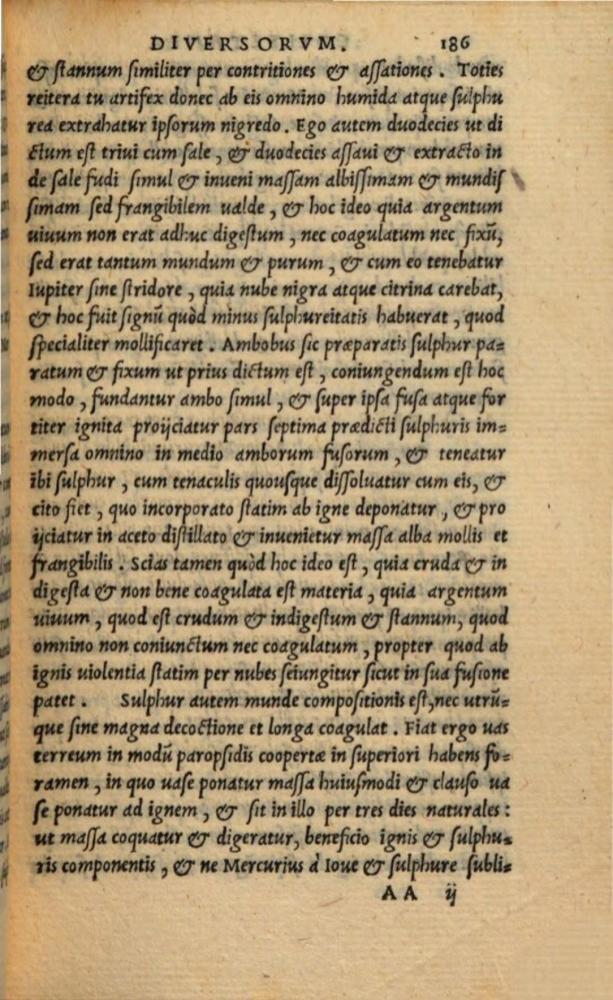 DIVERSORVM. 186
& ſtannum ſimiliter per contritiones & aſſationes. Toties
reitera tu artifex donec ab eis omnino humida atque ſulphu
rea extrahatur ipſorum nigredo. Ego autem duodecies ut di
ctum eſt triui cum ſale, & duodecies aſſaui & extracto in
de ſale fudi ſimul & inueni maſſam albiſſimam & mundiſ
ſimam ſed frangibilem ualde, & hoc ideo quia argentum
uiuum non erat adhuc digeſtum, nec coagulatum nec fixū,
ſed erat tantum mundum & purum, & cum eo tenebatur
Iupiter ſine ſtridore, quia nube nigra atque citrina carebat,
& hoc fuit ſignū quòd minus ſulphureitatis habuerat, quod
ſpecialiter mollificaret. Ambobus ſic præparatis ſulphur pa=
ratum & fixum ut prius dictum eſt, coniungendum eſt hoc
modo, fundantur ambo ſimul, & ſuper ipſa fuſa atque for
titer ignita proijciatur pars ſeptima prædicti ſulphuris im=
merſa omnino in medio amborum fuſorum, & teneatur
ibi ſulphur, cum tenaculis quouſque diſſoluatur cum eis, &
cito fiet, quo incorporato ſtatim ab igne deponatur, & pro
ijciatur in aceto diſtillato & inuenietur maſſa alba mollis et
frangibilis. Scias tamen quòd hoc ideo eſt, quia cruda & in
digeſta & non bene coagulata eſt materia, quia argentum
uiuum, quod eſt crudum & indigeſtum & ſtannum, quod
omnino non coniunctum nec coagulatum, propter quod ab
ignis uiolentia ſtatim per nubes ſeiungitur ſicut in ſua fuſione
patet. Sulphur autem munde compoſitionis eſt, nec utrū=
que ſine magna decoctione et longa coagulat. Fiat ergo uas
terreum in modū paropſidis coopertæ in ſuperiori habens fo=
ramen, in quo uaſe ponatur maſſa huiuſmodi & clauſo ua
ſe ponatur ad ignem, & ſit in illo per tres dies naturales:
ut maſſa coquatur & digeratur, beneficio ignis & ſulphu=
ris componentis, & ne Mercurius à Ioue & ſulphure ſubli=
AA ij